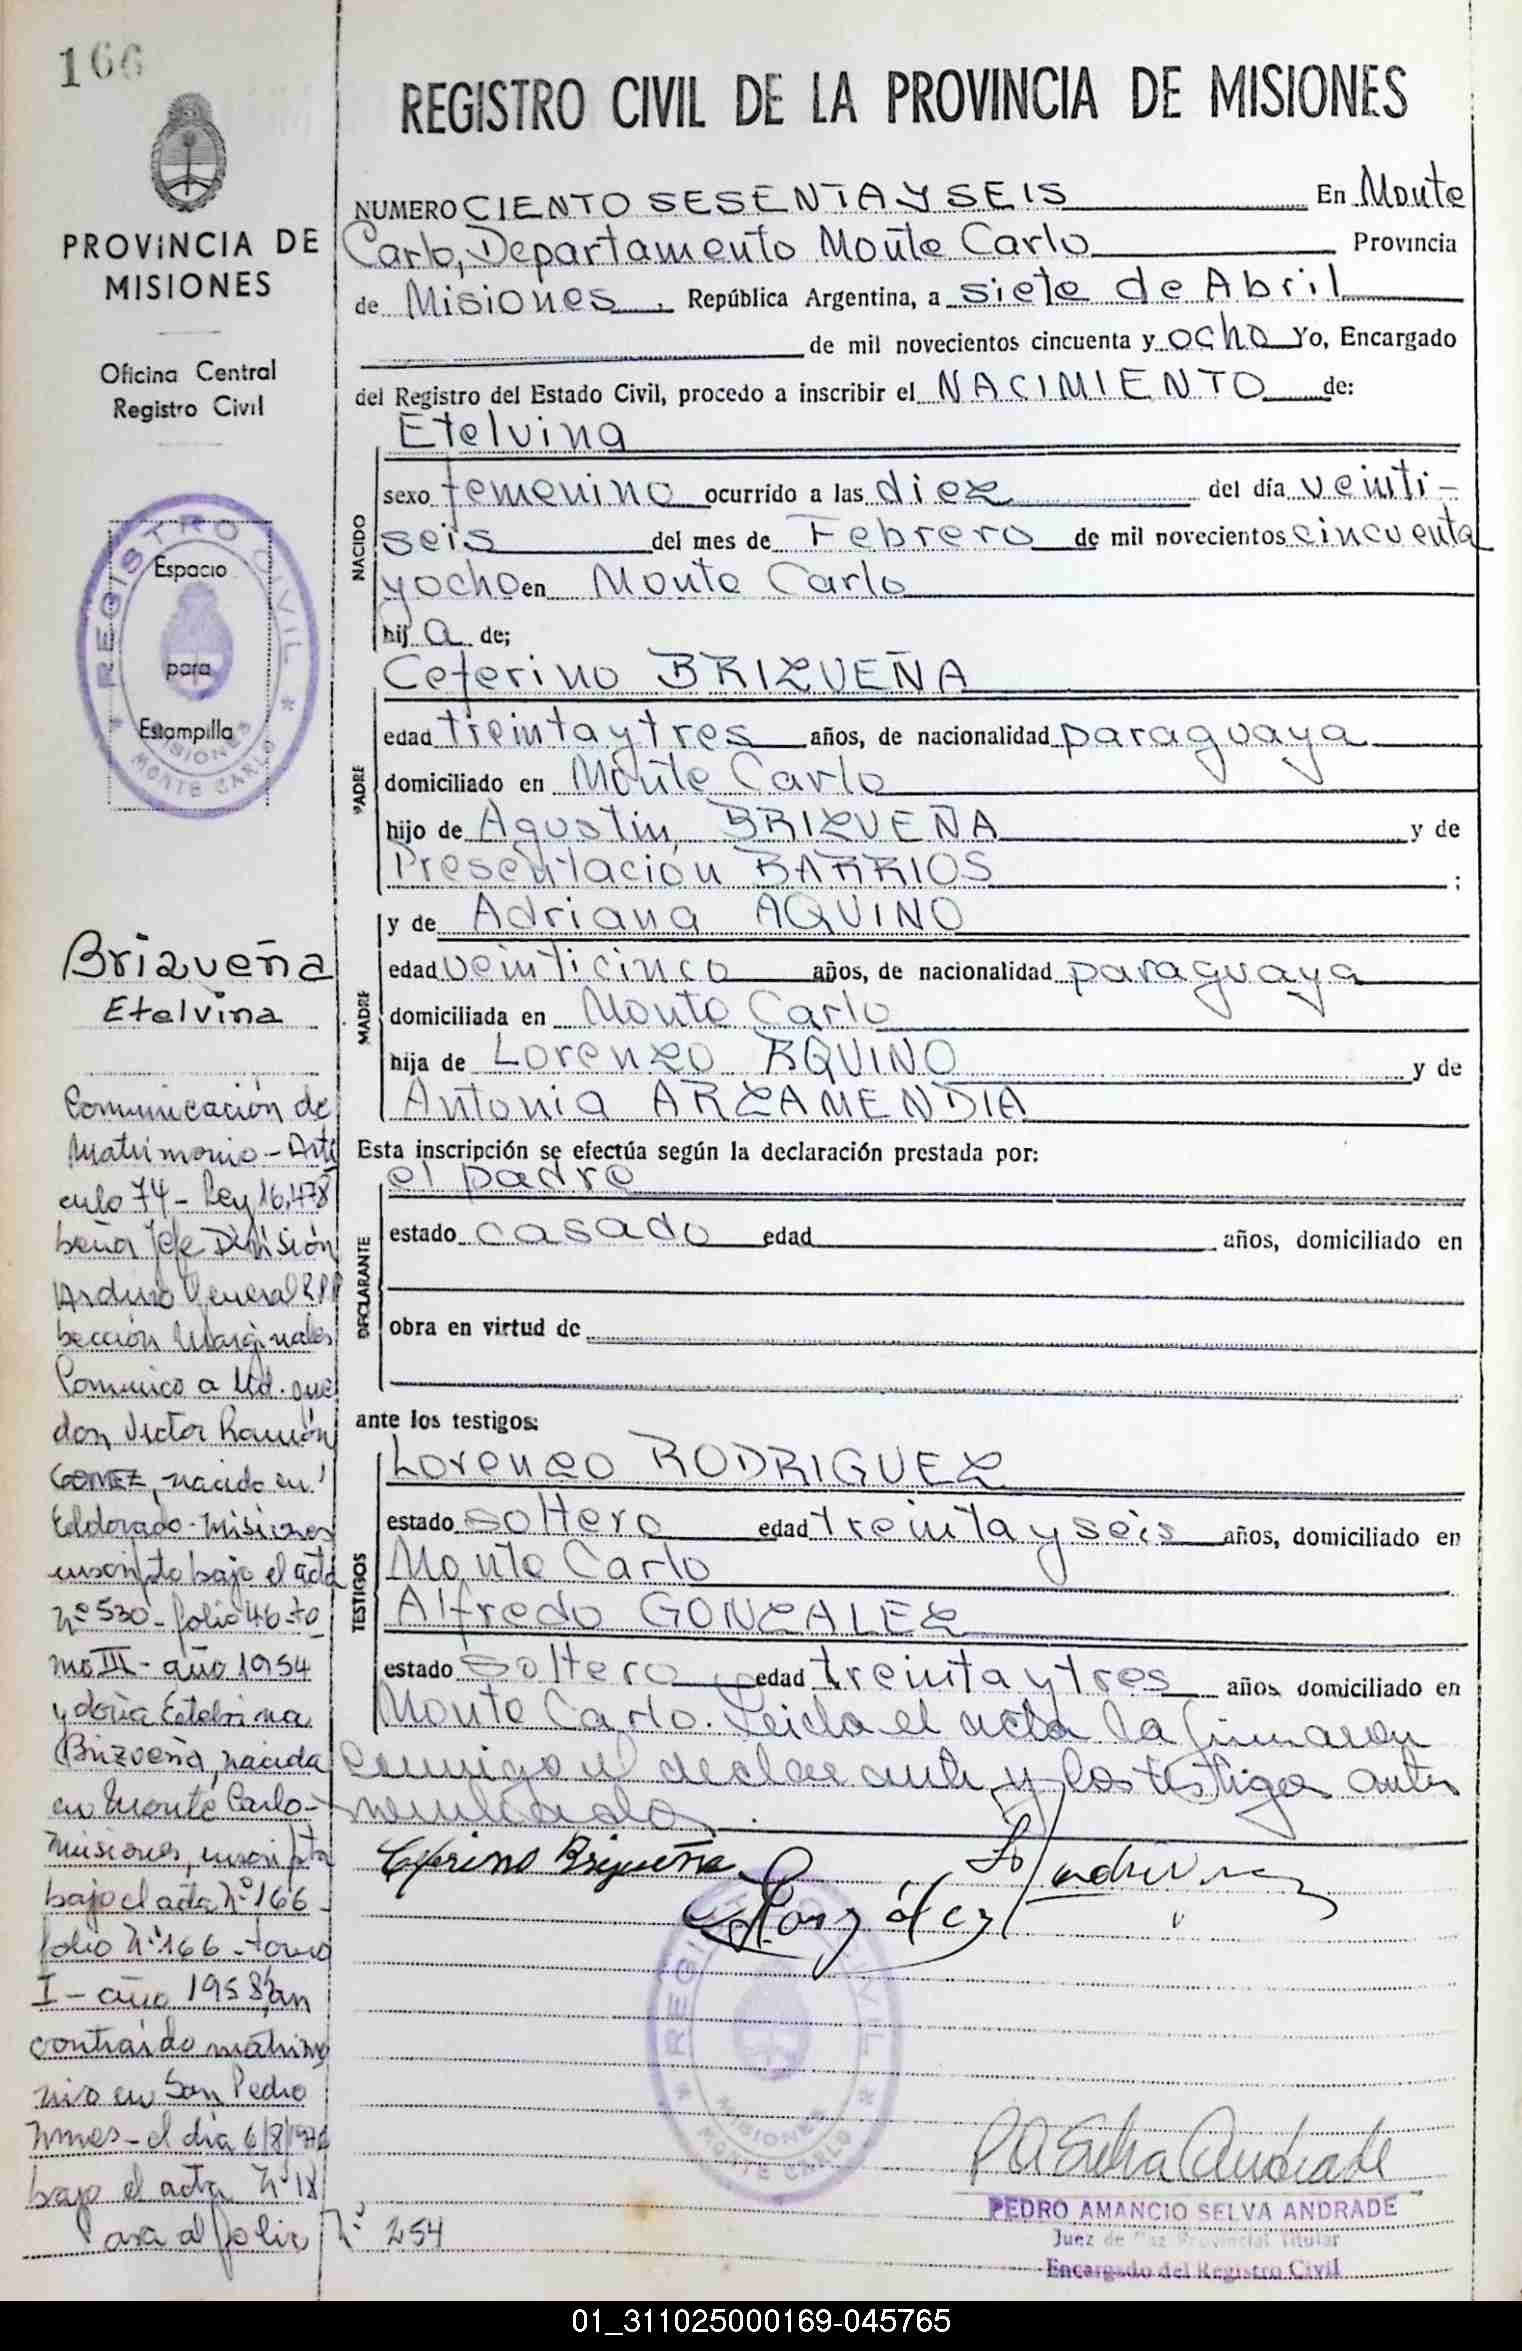 166
PROVINCIA DE
MISIONES
Oficina Central
Registro Civil
REGISTRO CIVIL
Espacio
para
Estampilla
MISIONES
MONTE CARLO
Brizueña
Etelvina
Comunicación de
Matrimonio - Artí
culo 74 - Ley 16.478
Señor Jefe División
Archivo General R.P.P
Sección Marginales
Comunico a Ud. que
don Victor Ramón
GOMEZ, nacido en
Eldorado - Misiones
inscripto bajo el acta
Nº 530 - folio 46 - to
mo III - año 1954
y doña Etelvina
Brizueña, nacida
en Monte Carlo -
Misiones, inscripta
bajo el acta Nº 166 -
folio Nº 166 - tomo
I - año 1958, han
contraído matrimo
nio en San Pedro
Mnes - el día 6/8/
bajo el acta Nº 18
Pasa al folio Nº 254
REGISTRO CIVIL DE LA PROVINCIA DE MISIONES
NUMERO CIENTO SESENTA Y SEIS En Monte
Carlo, Departamento Monte Carlo Provincia
de Misiones, República Argentina, a siete de Abril
de mil novecientos cincuenta y ocho Yo, Encargado
del Registro del Estado Civil, procedo a inscribir el NACIMIENTO de:
Etelvina
NACIDO
sexo femenino ocurrido a las diez del día veinti-
seis del mes de Febrero de mil novecientos cincuenta
y ocho en Monte Carlo
hij a de;
Ceferino BRIZUEÑA
PADRE
edad treinta y tres años, de nacionalidad paraguaya
domiciliado en Monte Carlo
hijo de Agustín BRIZUEÑA y de
Presentación BARRIOS ;
y de Adriana AQUINO
MADRE
edad veinticinco años, de nacionalidad paraguaya
domiciliada en Monte Carlo
hija de Lorenzo AQUINO y de
Antonia ARZAMENDIA
Esta inscripción se efectúa según la declaración prestada por:
el padre
DECLARANTE
estado casado edad años, domiciliado en
obra en virtud de
ante los testigos:
Lorenzo RODRIGUEZ
TESTIGOS
estado soltero edad treinta y seis años, domiciliado en
Monte Carlo
Alfredo GONZALEZ
estado soltero edad treinta y tres años domiciliado en
Monte Carlo. Leida el acta la firmaron
conmigo el declarante y los testigos antes
nombrados.
Ceferino Brizueña
González
REGISTRO CIVIL
MISIONES
MONTE CARLO
P A Selva Andrade
PEDRO AMANCIO SELVA ANDRADE
Juez de Paz Provincial Titular
Encargado del Registro Civil
01_311025000169-045765